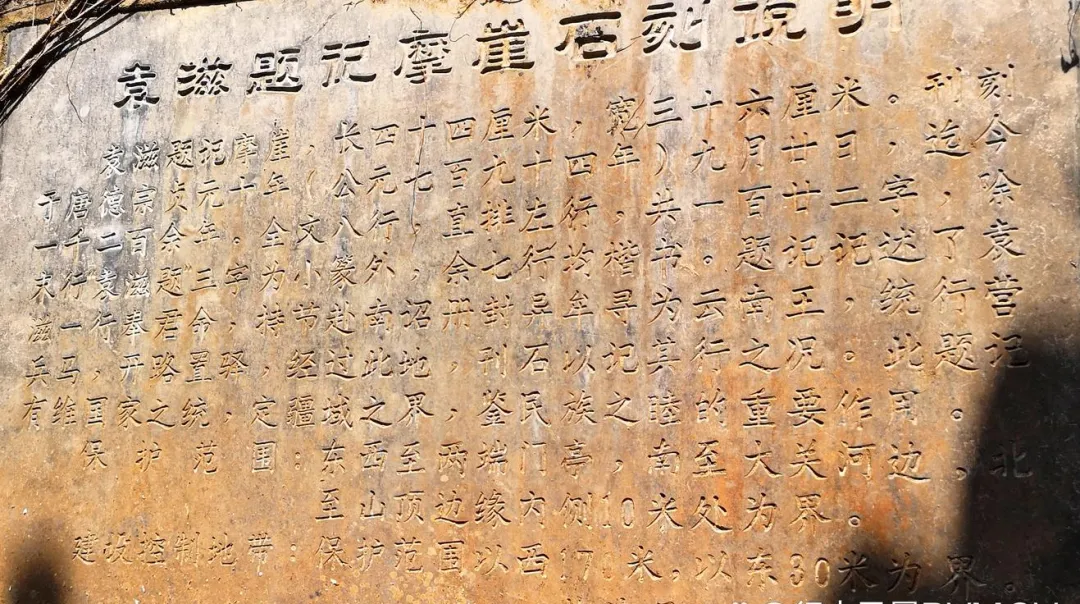 袁滋题记摩崖石刻说明
袁滋题记摩崖,长四十四厘米,宽三十六厘米。刊刻
于唐德宗贞元十年(公元七百九十四年)九月廿日,迄今
一千二百余年。全文八行,直排左行,共一百廿二字,除
末行“袁滋题”三字为小篆外,余七行均楷书。题记记述了袁
滋一行奉君命,持节赴南诏,册封异牟寻为云南王,统行营
兵马,开路置驿,经过此地,刊石以记其行之况。此题记
有维国家之统,定疆域之界,鉴民族之睦的重要作用。
保护范围:东西至两端门亭,南至大关河边,北
至山顶边缘内侧10米处为界。
建设控制地带:保护范围以西170米,以东30米为界。